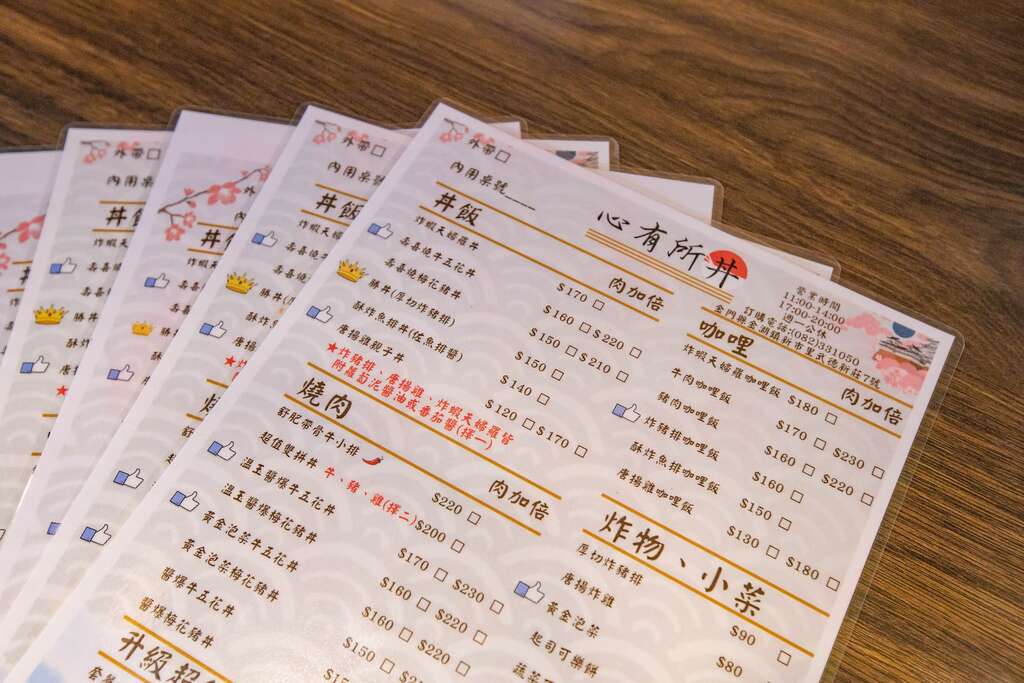 外帶□
內用桌號___
心有所丼
營業時間
11:00-14:00
17:00-20:00
週一公休
訂購電話:(082)331050
金門縣金湖鎮新市里武德新莊7號
丼飯 肉加倍
炸蝦天婦羅丼 $170 □
嘉喜燒牛五花丼 $160 □ $220 □
嘉喜燒梅花豬丼 $150 □ $210 □
勝丼(厚切炸豬排) $150 □
酥炸魚排丼(佐魚排醬) $140 □
唐揚雞親子丼 $120 □ $170 □
★炸豬排、唐揚雞、炸蝦天婦羅皆
附蘿蔔泥醬油或番茄醬(擇一)
燒肉 肉加倍
舒肥帶骨牛小排 $220 □
超值雙拼丼 牛、豬、雞(擇二) $200 □
溫玉醬爆牛五花丼 $170 □ $230 □
溫玉醬爆梅花豬丼 $160 □ $220 □
黃金泡菜牛五花丼 $160 □ $220 □
黃金泡菜梅花豬丼 $150 □
醬爆牛五花丼
醬爆梅花豬丼
升級超
套餐
咖哩 肉加倍
炸蝦天婦羅咖哩飯 $180 □
牛肉咖哩飯 $170 □ $230 □
豬肉咖哩飯 $160 □ $220 □
炸豬排咖哩飯 $160 □
酥炸魚排咖哩飯 $150 □
唐揚雞咖哩飯 $130 □ $180 □
炸物、小菜
厚切炸豬排 $90 □
唐揚炸雞 $80
黃金泡菜
起司可樂餅
外帶□
內用桌號
丼飯
炸蝦天婦
嘉喜燒牛
嘉喜燒
勝丼(
酥炸
唐揚